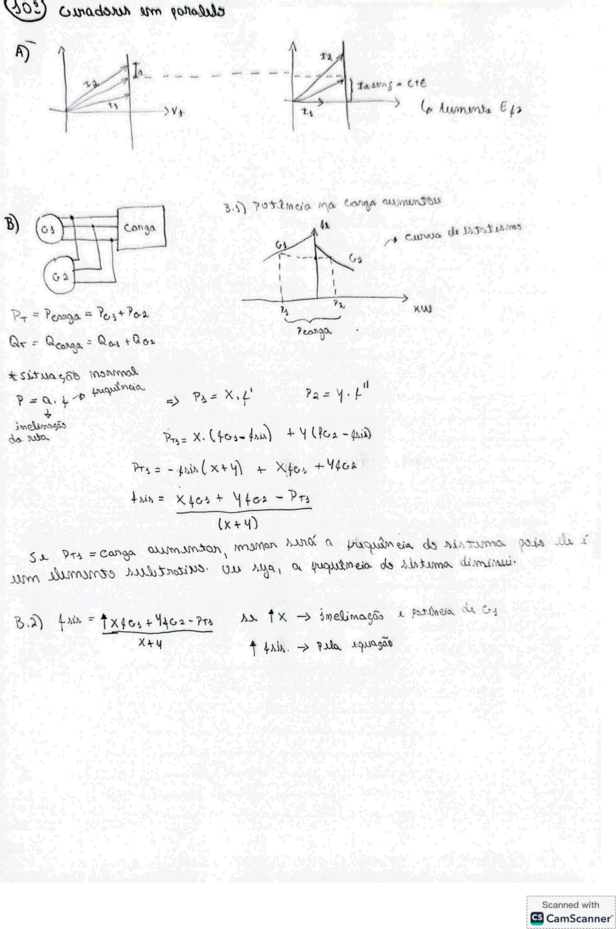 10ª Geradores em paralelo
A)
I2 Ia I1 V1
I2 Ia I1 = CTE
↳ Aumenta Ef2
B) G1 G2 Carga
B.1) Potência na carga aumentou
G1 G2 → curva de estatismo
P1 P2 KW
Pcarga
PT = Pcarga = PG1 + PG2
QT = Qcarga = QG1 + QG2
* Situação normal
P = a. f → frequência
inclinação da reta
⇒ P1 = X. f' P2 = Y. f''
PT1 = X. (fG1 - fsis) + Y (fG2 - fsis)
PT1 = - fsis (X+Y) + XfG1 + YfG2
fsis = XfG1 + YfG2 - PT1
(X+Y)
Se PT1 = carga aumentar, menor será a frequência do sistema pois ele é
um elemento subtrativo. Ou seja, a frequência do sistema diminui.
B.2) fsis = ↑XfG1 + YfG2 - PT1 se ↑X → inclinação e potência de G1
X+Y ↑ fsis. → Pela equação
Scanned with
CS CamScanner